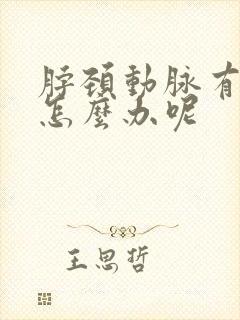 脖頸動脉有
怎麼办呢
王思哲